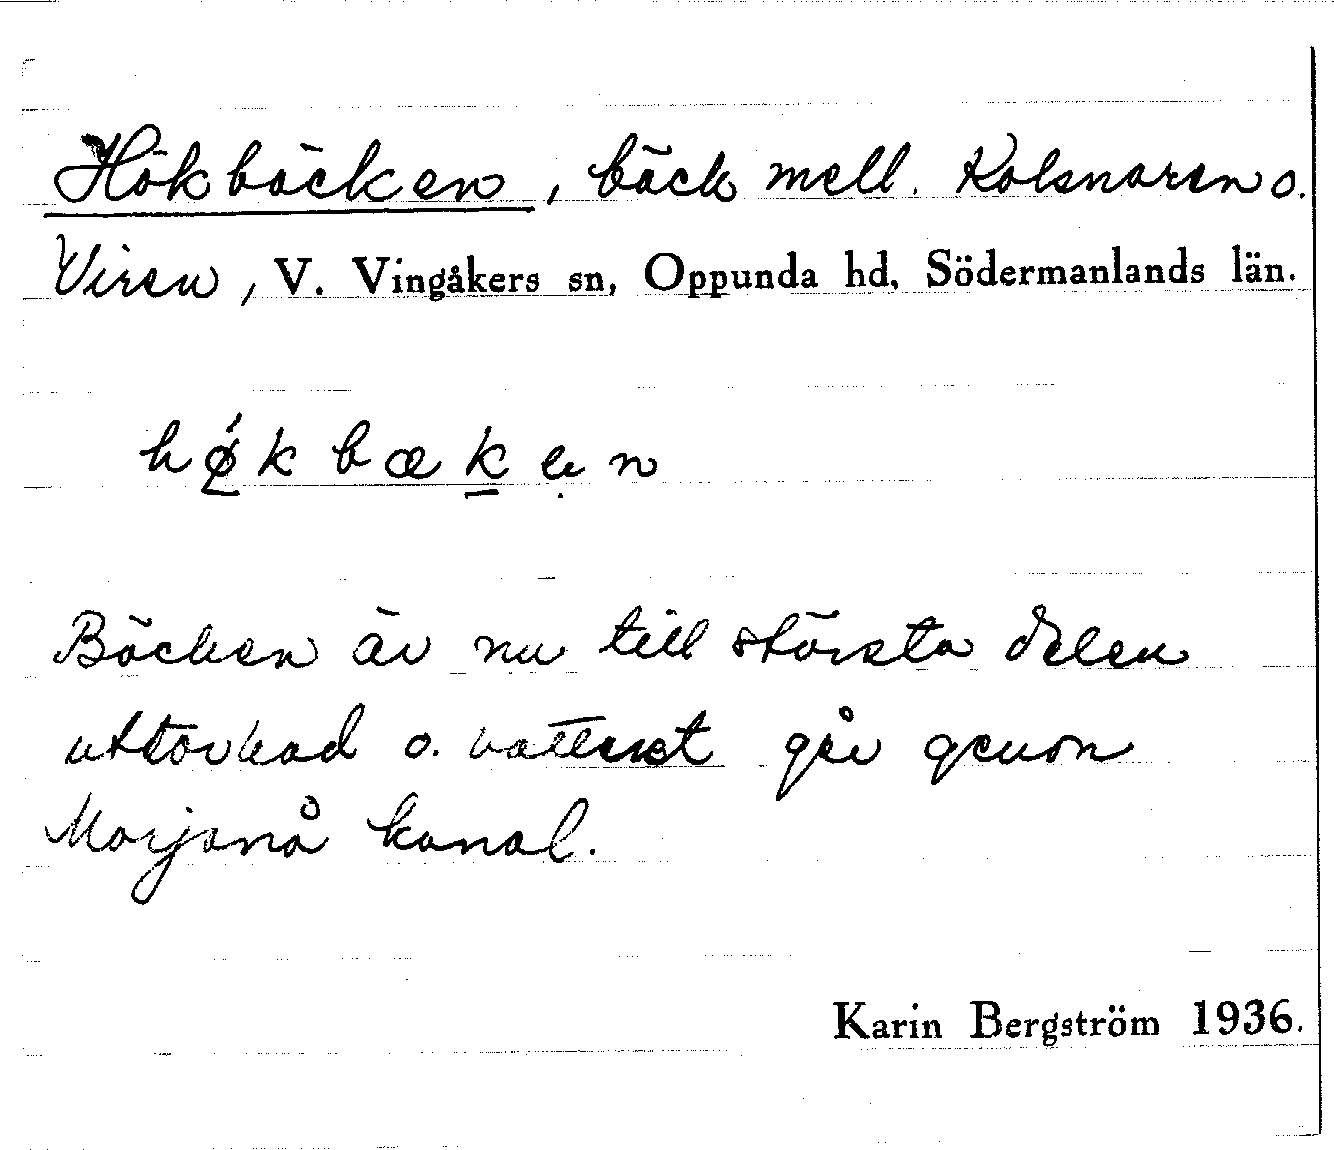 Hökbäcken, bäck mell. Kolsnaren o.
Viren, V. Vingåkers sn, Oppunda hd, Södermanlands län.
hǿkbæken
Bäcken är nu till största delen
uttorkad o. vattnet går genom
Morjanå kanal.
Karin Bergström 1936.